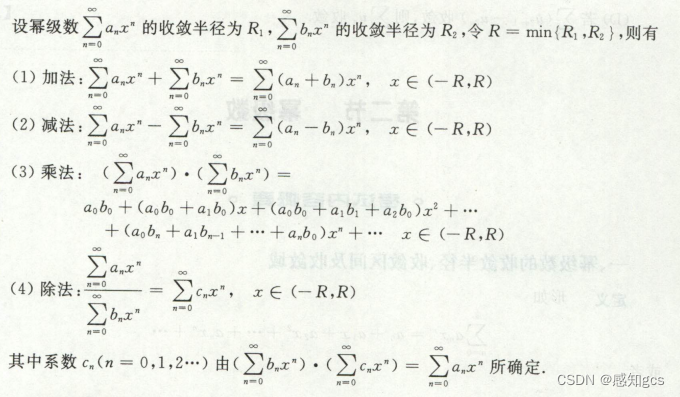 设幂级数$\sum_{n=0}^{\infty} a_n x^n$ 的收敛半径为 $R_1$,$\sum_{n=0}^{\infty} b_n x^n$ 的收敛半径为 $R_2$,令 $R = \min\{R_1, R_2\}$,则有
(1) 加法:$\sum_{n=0}^{\infty} a_n x^n + \sum_{n=0}^{\infty} b_n x^n = \sum_{n=0}^{\infty} (a_n + b_n) x^n, \quad x \in (-R, R)$
(2) 减法:$\sum_{n=0}^{\infty} a_n x^n - \sum_{n=0}^{\infty} b_n x^n = \sum_{n=0}^{\infty} (a_n - b_n) x^n, \quad x \in (-R, R)$
(3) 乘法: $(\sum_{n=0}^{\infty} a_n x^n) \cdot (\sum_{n=0}^{\infty} b_n x^n) =$
$a_0 b_0 + (a_0 b_0 + a_1 b_0) x + (a_0 b_0 + a_1 b_1 + a_2 b_0) x^2 + \cdots$
$+ (a_0 b_n + a_1 b_{n-1} + \cdots + a_n b_0) x^n + \cdots \quad x \in (-R, R)$
(4) 除法:$\frac{\sum_{n=0}^{\infty} a_n x^n}{\sum_{n=0}^{\infty} b_n x^n} = \sum_{n=0}^{\infty} c_n x^n, \quad x \in (-R, R)$
其中系数 $c_n (n = 0,1,2\cdots)$ 由$(\sum_{n=0}^{\infty} b_n x^n) \cdot (\sum_{n=0}^{\infty} c_n x^n) = \sum_{n=0}^{\infty} a_n x^n$ 所确定.
CSDN @感知gcs